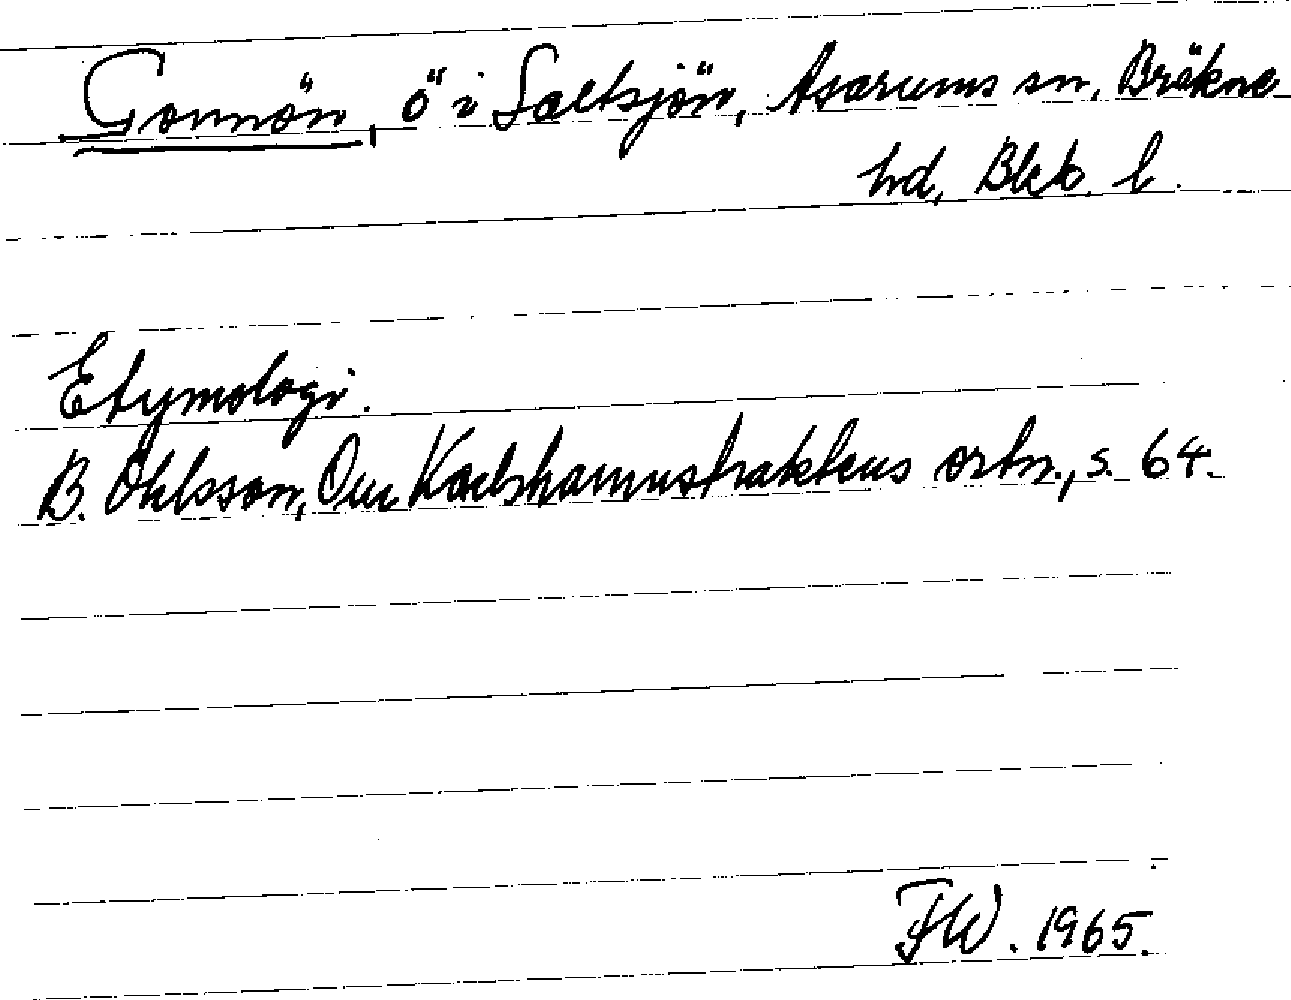 Gonnön, ö i Saltsjön, Asarums sn, Bräkne
hd, Blek. l.
Etymologi.
B. Ohlsson, Om Karlshamnstraktens ortn., s. 64.
FW. 1965.